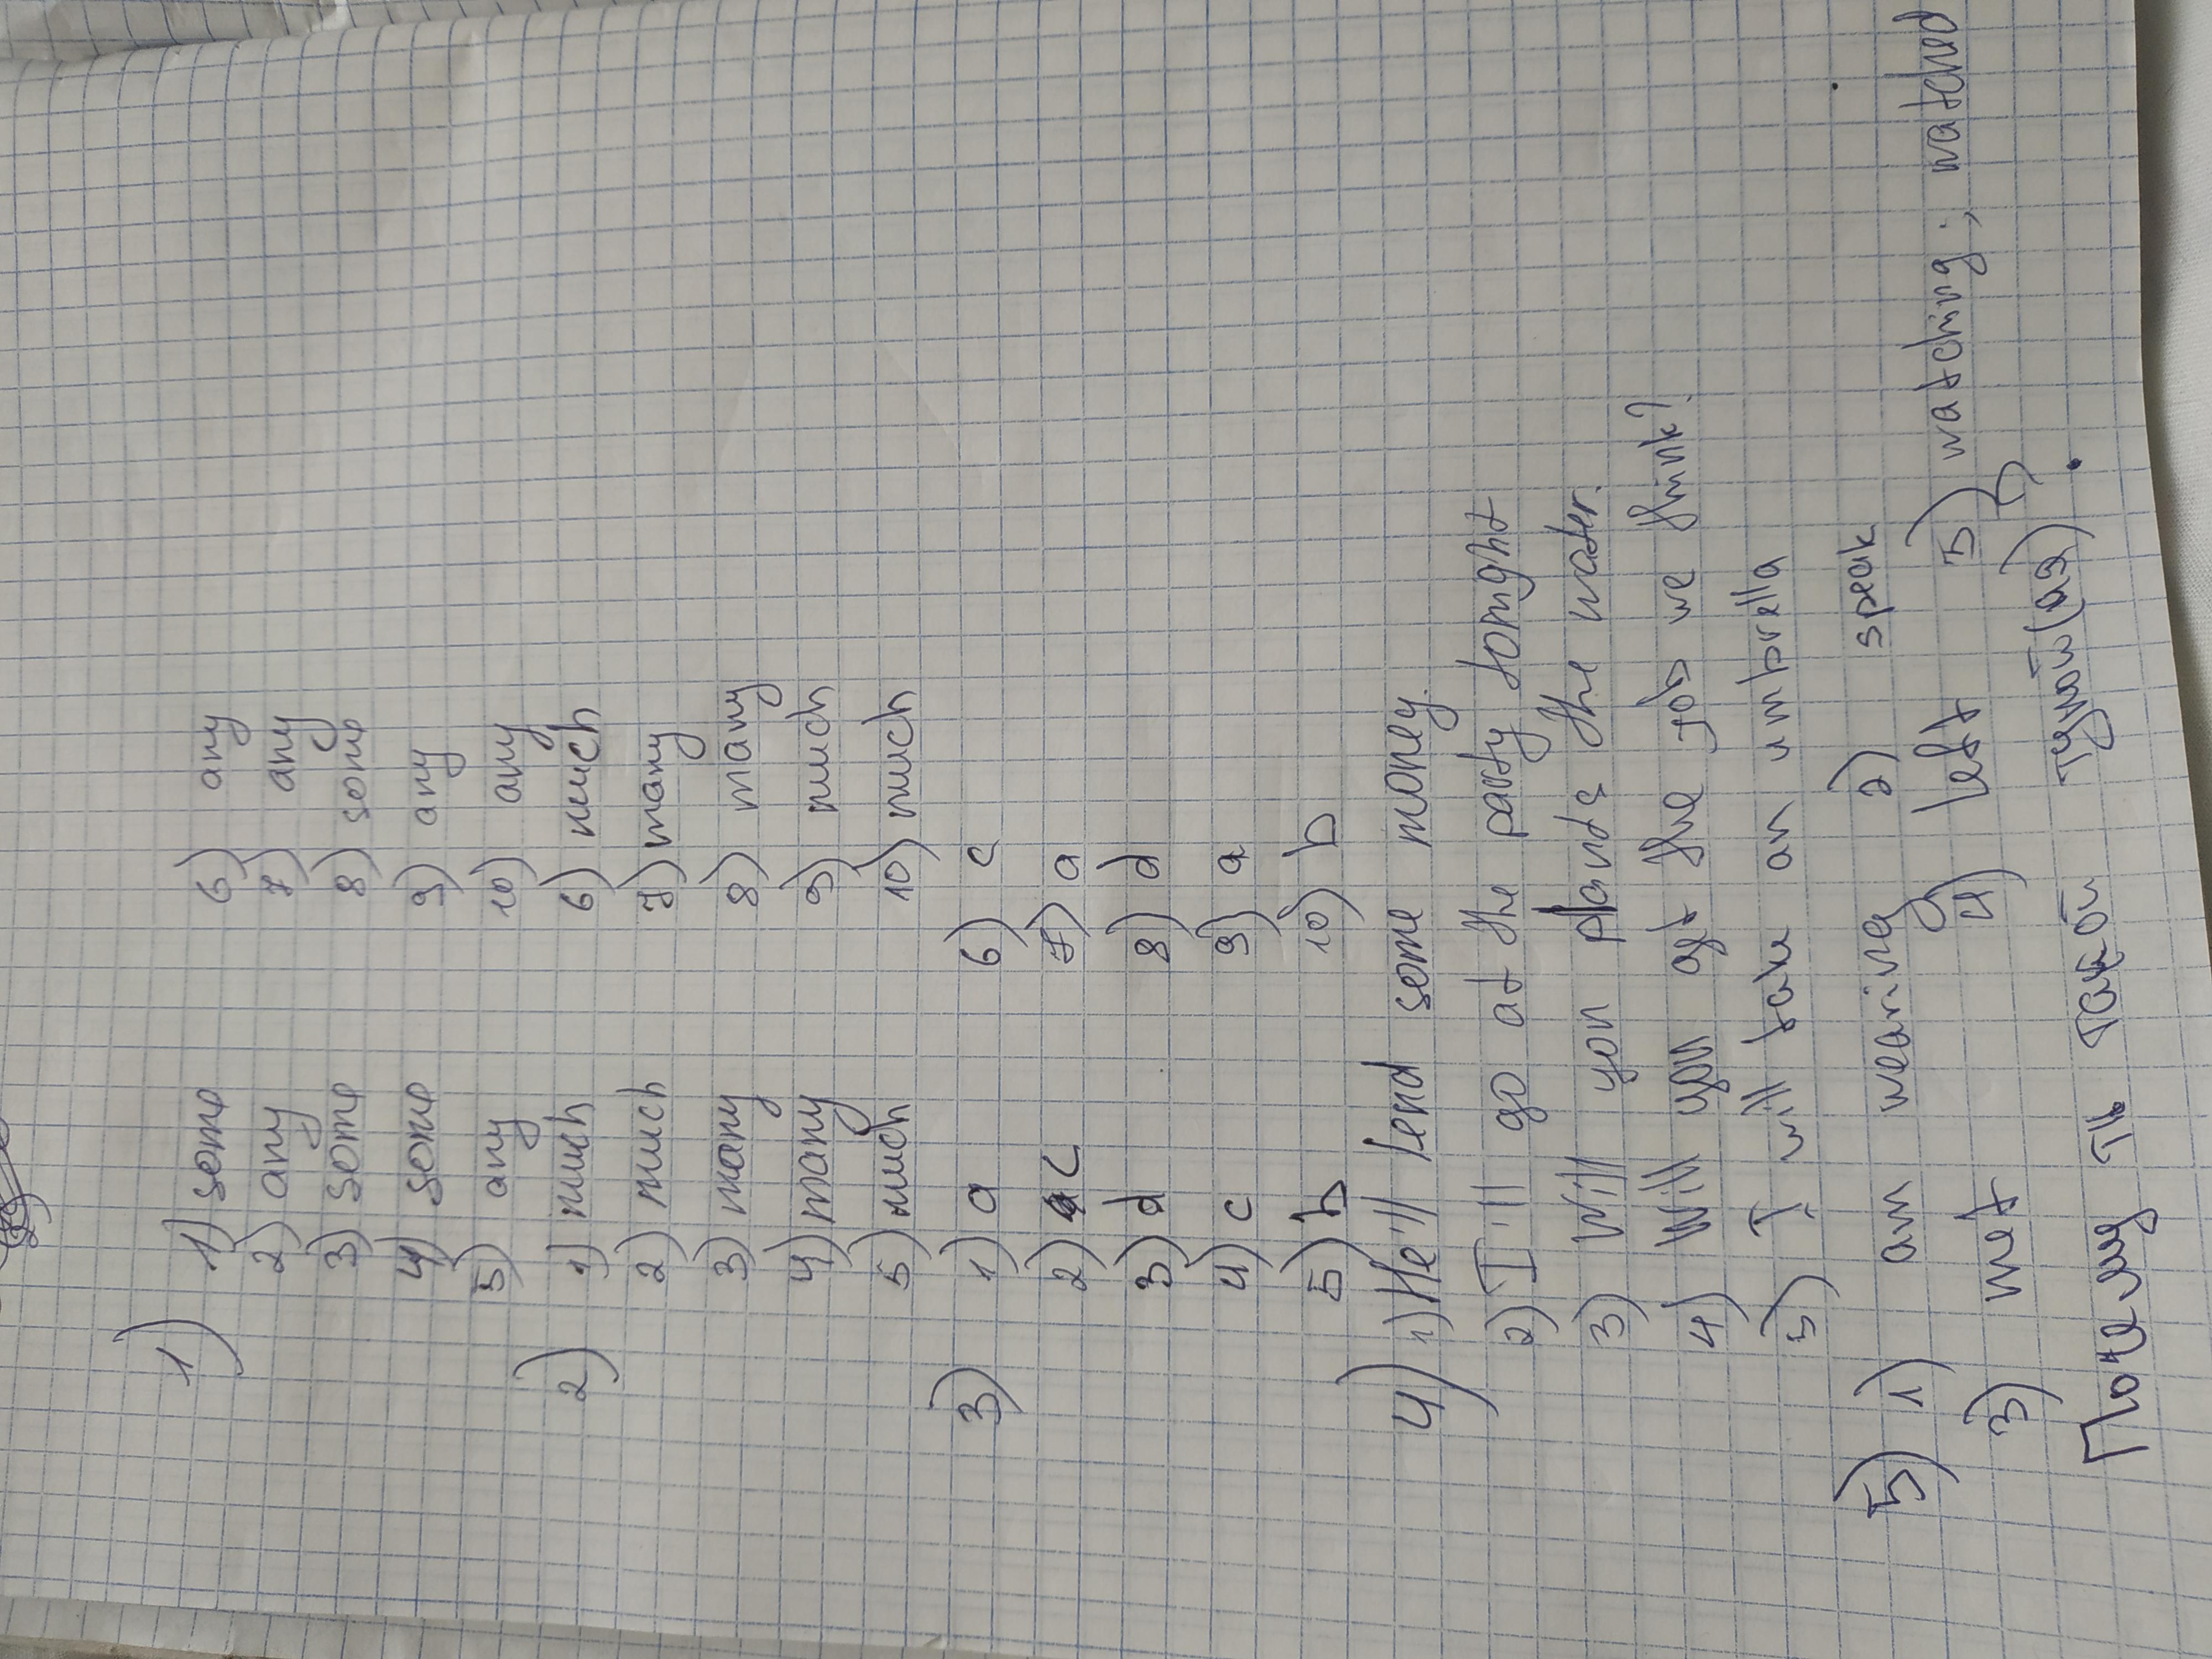 1) 1) some 6) any
2) any 7) any
3) some 8) some
4) some 9) any
5) any 10) any
2) 1) much 6) much
2) much 7) many
3) many 8) many
4) many 9) much
5) much 10) much
3) 1) a 6) c
2) c 7) a
3) d 8) d
4) c 9) a
5) b 10) b
4) 1) He'll lend some money.
2) I'll go at the party tonight
3) Will you plants the water.
4) Will you get the job we think?
5) I will take an umbrella
5) 1) am wearing 2) speak
3) met 4) left 5) watching; watched
Почему ты такой тупой(ая)?